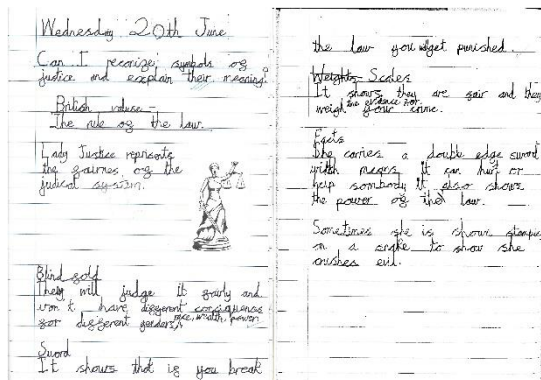 Wednesday 20th June
Can I recognize symbols of
justice and explain their meaning?
British value -
The rule of the law.
Lady Justice reprisents
the fairnes of the
judical system.
Blind fold
They will judge it fairly and
won't have different consiquences
for different genders, race, wealth, power
Sword
It shows that if you break
the law you get punished.
Weights Scales
It shows they are fair and they
weigh the evidence for your crime.
Facts
She carries a double edge sword
wich means it can hurt or
help sombody it also shows
the power of the law.
Sometimes she is shown stamping
on a snake to show she
crushes evil.